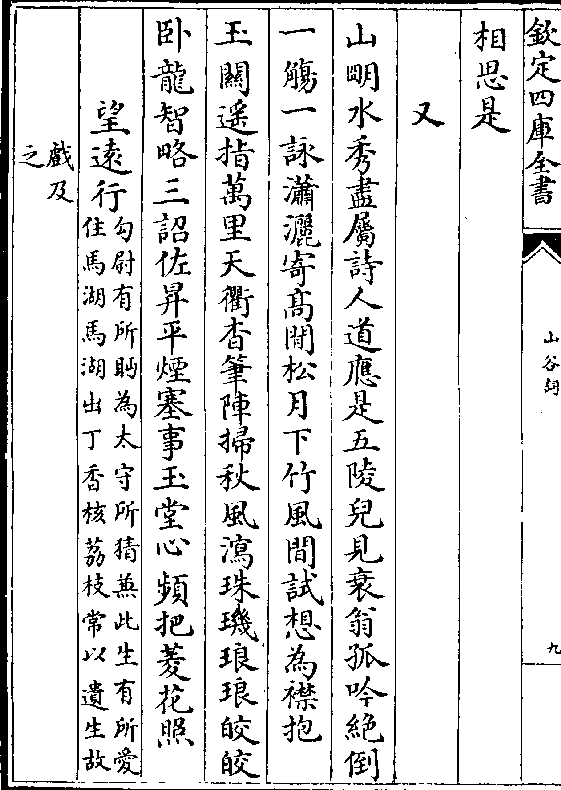 欽定四庫全書
山谷詞
九
相思是
又
山明水秀盡屬詩人道應是五陵兒見衰翁孤吟絶倒
一觴一詠瀟灑寄髙閒松月下竹風間試想為襟抱
玉關遥指萬里天衢杳筆陣掃秋風瀉珠璣琅琅皎皎
卧龍智略三詔佐昇平煙塞事玉堂心頻把菱花照
望逺行
勾尉有所盻為太守所猜兼此生有所愛
住馬湖馬湖出丁香核荔枝常以遺生故
戲及
之